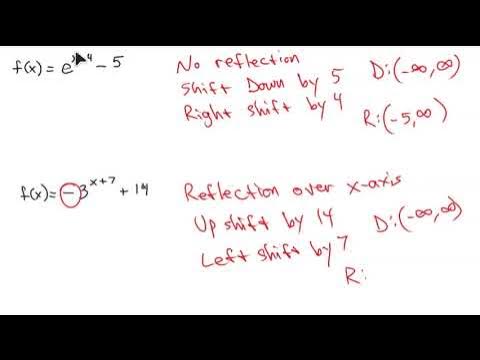 f(x) = e^x-4 - 5 No reflection
Shift Down by 5 D: (-∞, ∞)
Right shift by 4 R: (-5, ∞)
f(x) = -3^x+7 + 14 Reflection over x-axis
Up shift by 14 D: (-∞, ∞)
Left shift by 7
R: